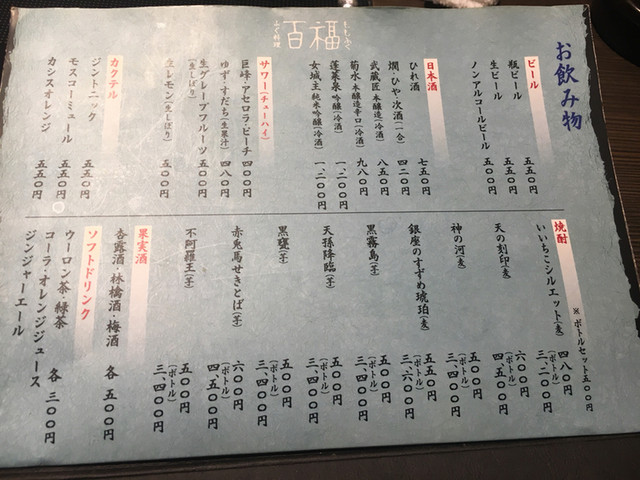 百福
ふぐ料理
ももふく
お飲み物
ビール
瓶ビール 五五〇円
生ビール 五五〇円
ノンアルコールビール 五〇〇円
日本酒
ひれ酒 七五〇円
燗・ひや・次酒(一合) 四二〇円
武蔵匠 本醸造(冷酒) 八五〇円
菊水 本醸造辛口(冷酒) 九八〇円
蓬莱泉 吟醸(冷酒) 一、二〇〇円
女城主 純米吟醸(冷酒) 一、二〇〇円
サワー(チューハイ)
巨峰・アセロラ・ピーチ 四〇〇円
ゆず・すだち(生果汁) 四八〇円
生グレープフルーツ(生しぼり) 五〇〇円
生レモン(生しぼり) 五〇〇円
カクテル
ジントニック 五五〇円
モスコーミュール 五五〇円
カシスオレンジ 五五〇円
焼酎
※ボトルセット五〇〇円
いいちこシルエット(麦) 四八〇円
(ボトル) 三、二〇〇円
天の刻印(麦) 六〇〇円
(ボトル) 四、五〇〇円
神の河(麦) 五〇〇円
(ボトル) 三、四〇〇円
銀座のすずめ琥珀(麦) 五五〇円
(ボトル) 三、六〇〇円
黒霧島(芋) 五〇〇円
(ボトル) 三、四〇〇円
天孫降臨(芋) 五〇〇円
(ボトル) 三、四〇〇円
黒甕(芋) 五〇〇円
(ボトル) 三、四〇〇円
赤兎馬せきとば(芋) 六〇〇円
(ボトル) 四、五〇〇円
不阿羅王(芋) 五〇〇円
(ボトル) 三、四〇〇円
果実酒
杏露酒・林檎酒・梅酒 各 五〇〇円
ソフトドリンク
ウーロン茶・緑茶
コーラ・オレンジジュース 各 三〇〇円
ジンジャーエール